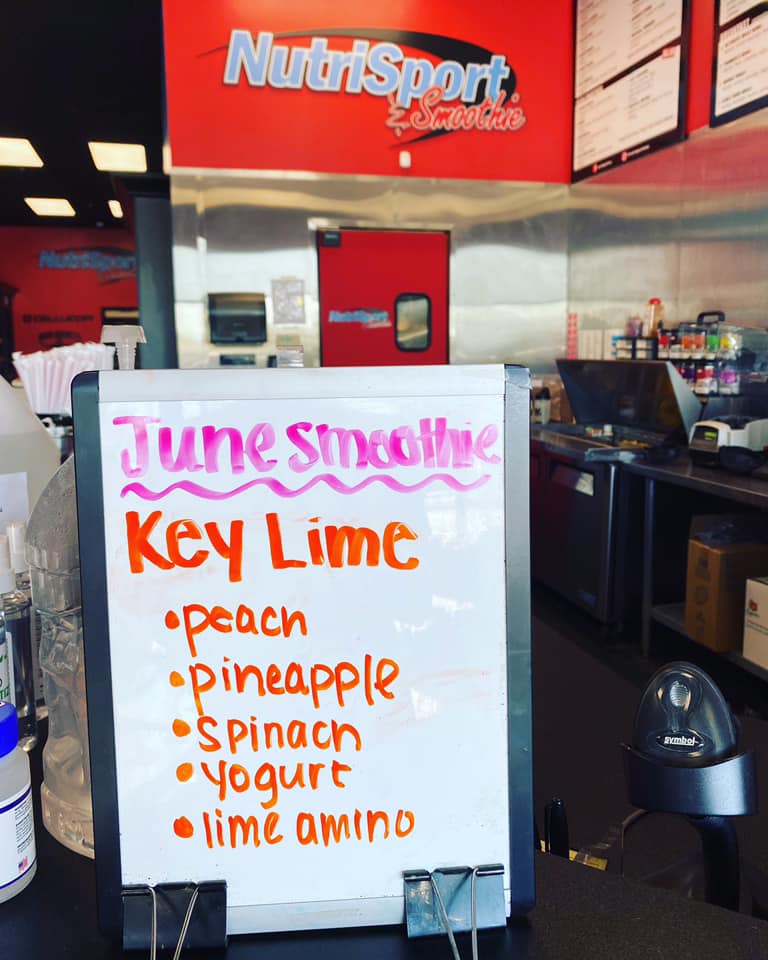 NutriSport
& Smoothie
NutriSport
NutriSport
CELLUCOR
June Smoothie
Key Lime
•peach
•pineapple
•spinach
•yogurt
•lime amino
symbol